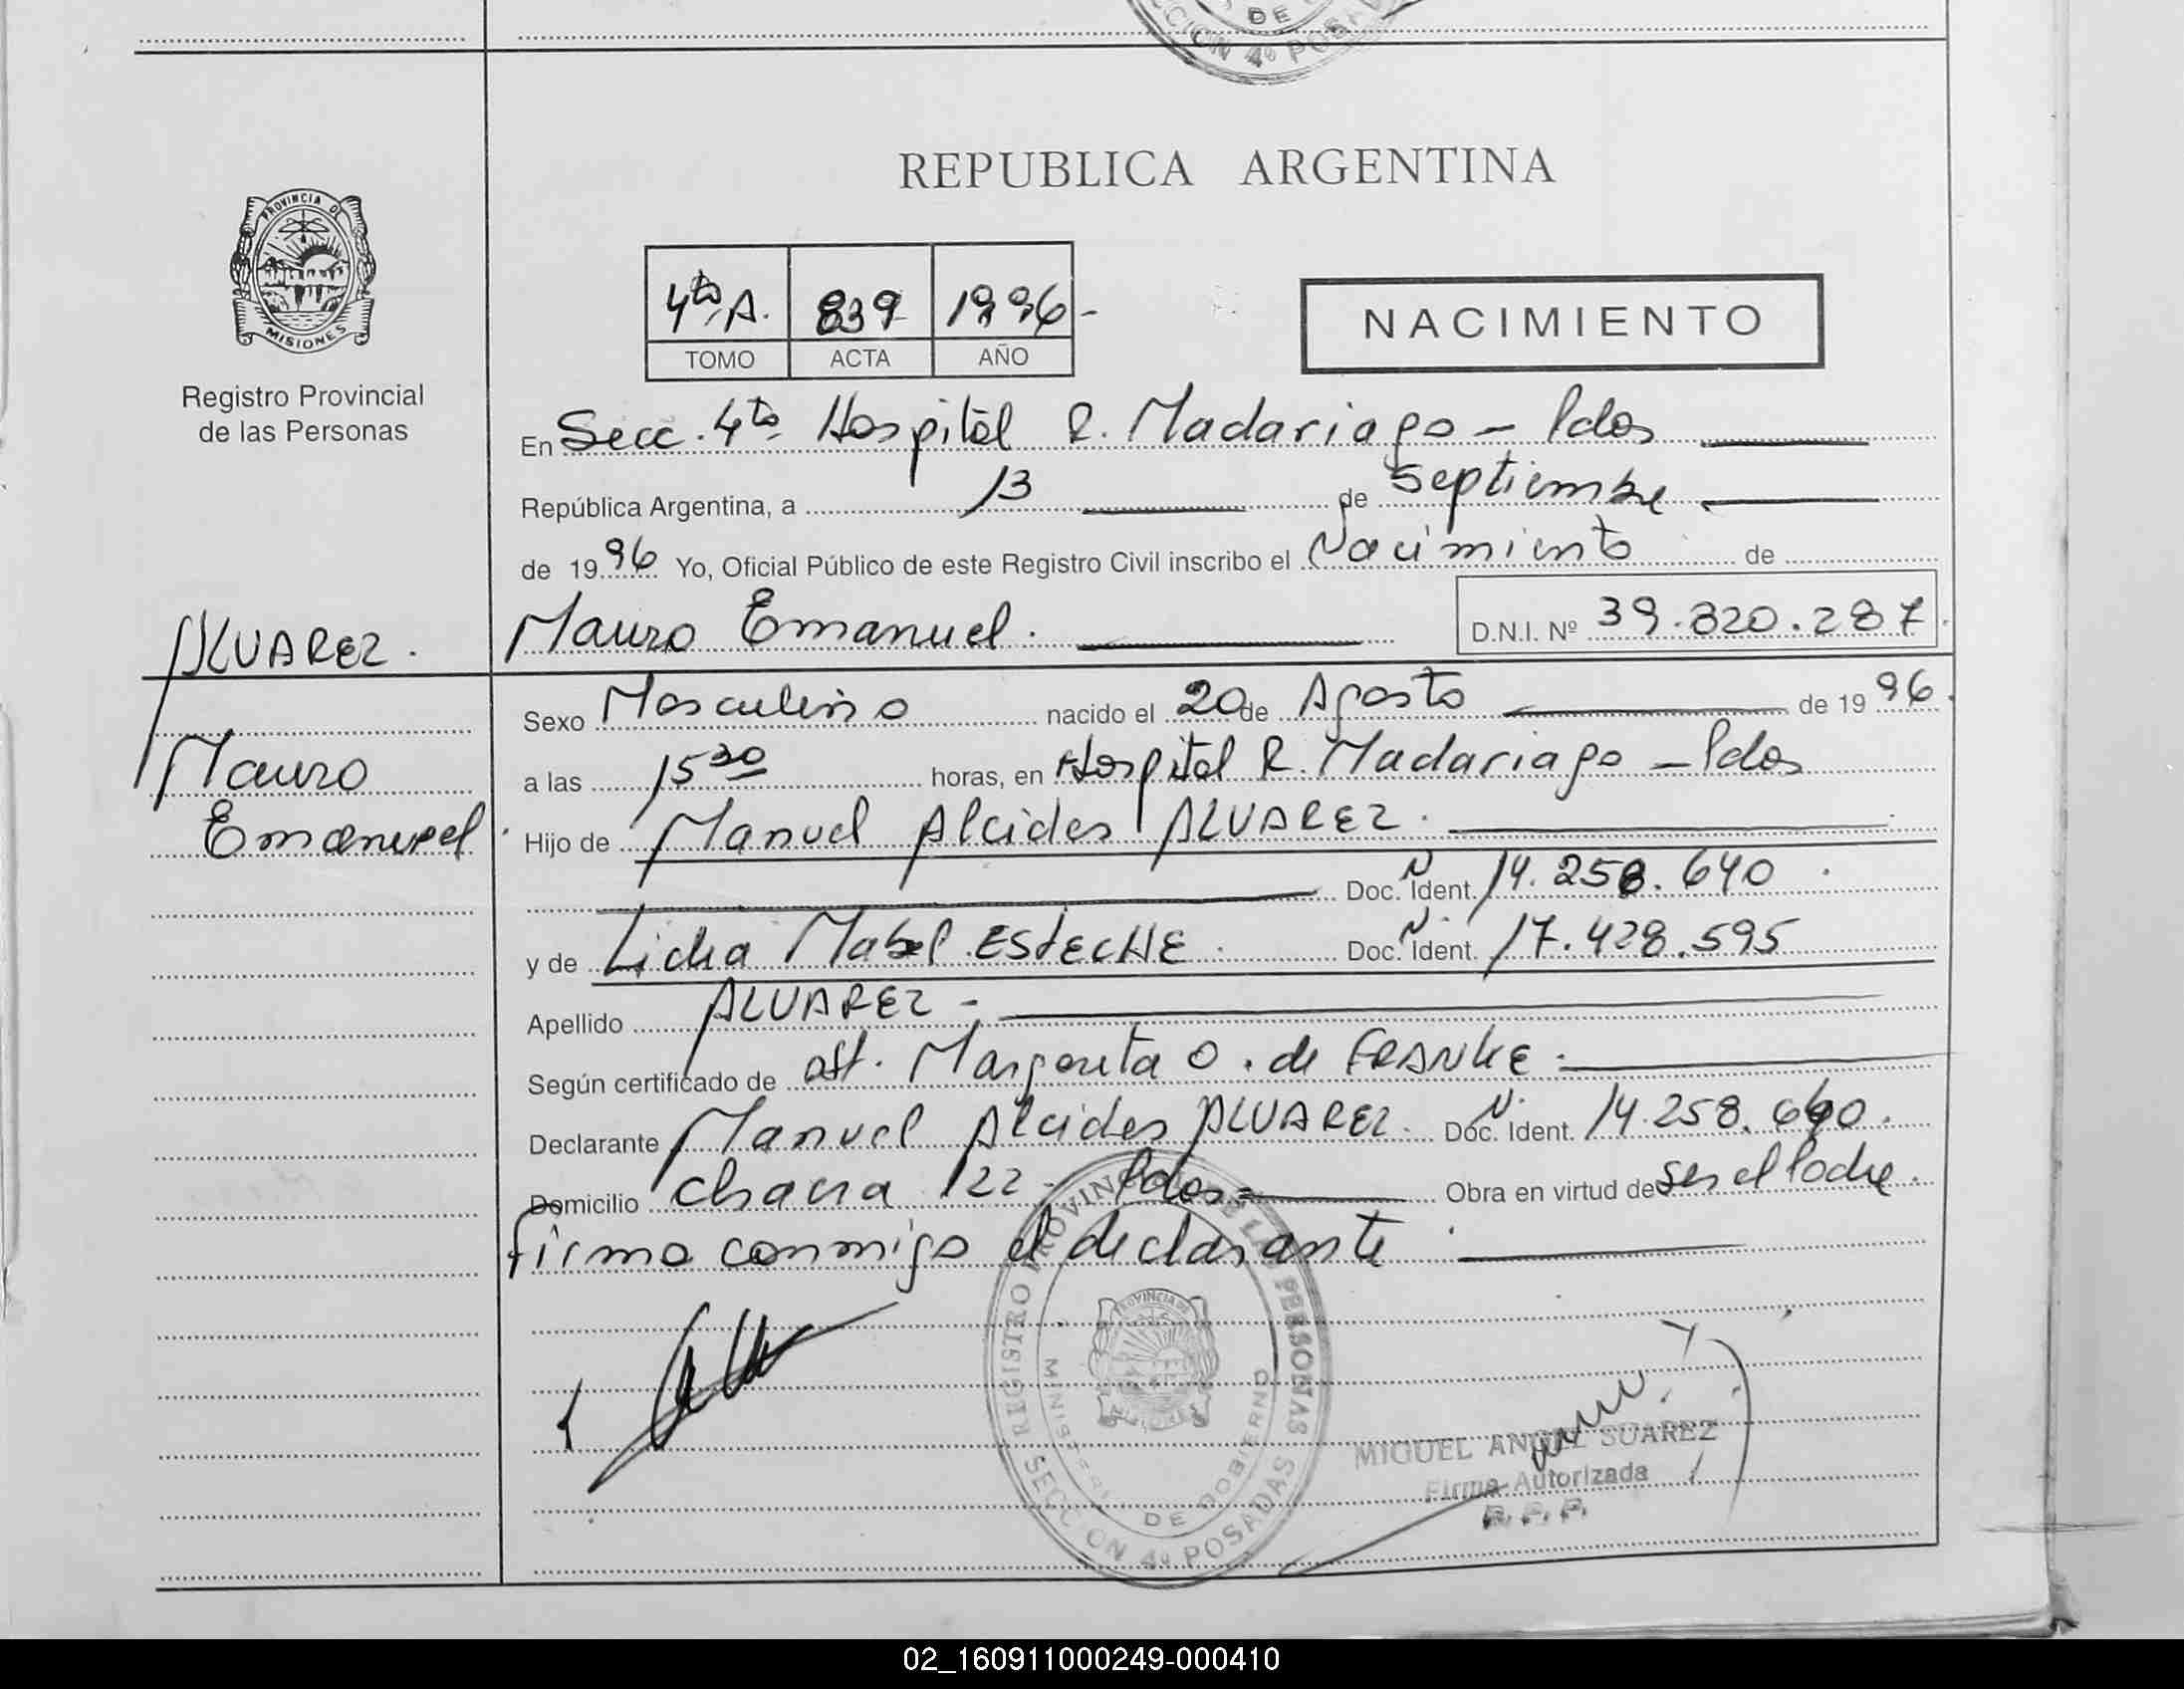 DE
CCION 4º POSA
REPUBLICA ARGENTINA
PROVINCIA DE
MISIONES
Registro Provincial
de las Personas
4ta A. 839 1996-
TOMO ACTA AÑO
NACIMIENTO
En Secc. 4ta Hospital R. Madariaga - Pdas
República Argentina, a 13 de Septiembre
de 1996 Yo, Oficial Público de este Registro Civil inscribo el Nacimiento de
Mauro Emanuel. D.N.I. Nº 39.820.287.
ALVAREZ.
Mauro
Emanuel
Sexo Masculino nacido el 20 de Agosto de 1996.
a las 15 30 horas, en Hospital R. Madariaga - Pdas
Hijo de Manuel Alcides ALVAREZ.
Doc. N. Ident. 14.258.640.
y de Lidia Mabel ESTECHE. Doc. N. Ident. 17.428.595
Apellido ALVAREZ -
Según certificado de obst. Margarita O. de FRANKE.
Declarante Manuel Alcides ALVAREZ. Doc. N. Ident. 14.258.640.
Domicilio Chacra 122 - Pdas= Obra en virtud de ser el Padre.
Firma conmigo el declarante.
REGISTRO PROVINCIAL DE LAS PERSONAS
MINISTERIO DE GOBIERNO
PROVINCIA DE
MISIONES
SECCION 4º POSADAS
MIGUEL ANGEL SUAREZ
Firma Autorizada
R. P. P.
02_160911000249-000410